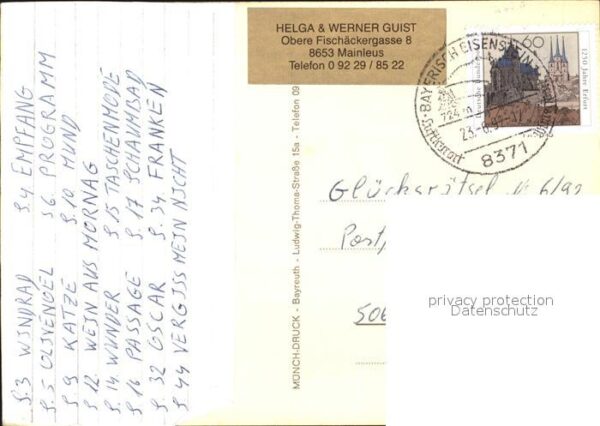 S.3 WINDRAD S.4 EMPFANG
S.5 OLIVENOEL S6. PROGRAMM
S.9 KATZE S.10 MUND
S.12. WEIN AUS MORNAG
S.14. WUNDER S.15 TASCHENMODE
S.16 PASSAGE S.17 SCHAUMBAD
S.32 OSCAR S.34 FRANKEN
S.44 VERGISS MEIN NICHT
HELGA & WERNER GUIST
Obere Fischäckergasse 8
8653 Mainleus
Telefon 0 92 29 / 85 22
MÜNCH-DRUCK - Bayreuth - Ludwig-Thoma-Straße 15a - Telefon 09
60
1250 Jahre Erfurt
Deutsche
BAYERISCH EISENSTEIN
Luftkurort
8371
Glücksrätsel N 6/92
Post
506
privacy protection
Datenschutz